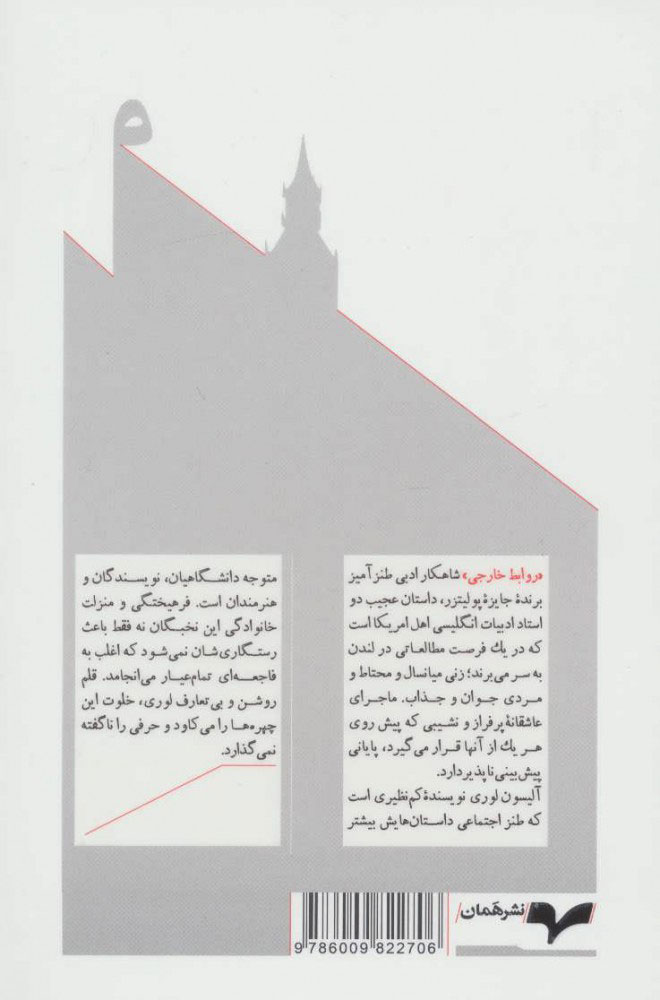 م
«روابط خارجی» شاهکار ادبی طنزآمیز
برندهٔ جایزهٔ پولیتزر، داستان عجیب دو
استاد ادبیات انگلیسی اهل امریکا است
که در یك فرصت مطالعاتی در لندن
به سر می‌برند؛ زنی میانسال و محتاط و
مردی جوان و جذاب. ماجرای
عاشقانهٔ پرفراز و نشیبی که پیش روی
هر یك از آنها قرار می‌گیرد، پایانی
پیش‌بینی‌ناپذیر دارد.
آلیسون لوری نویسندهٔ کم‌نظیری است
که طنز اجتماعی داستان‌هایش بیشتر
متوجه دانشگاهیان، نویسندگان و
هنرمندان است. فرهیختگی و منزلت
خانوادگی این نخبگان نه فقط باعث
رستگاری‌شان نمی‌شود که اغلب به
فاجعه‌ای تمام‌عیار می‌انجامد. قلم
روشن و بی‌تعارف لوری، خلوت این
چهره‌ها را می‌کاود و حرفی را ناگفته
نمی‌گذارد.
نشر هَمان
9 786009 822706